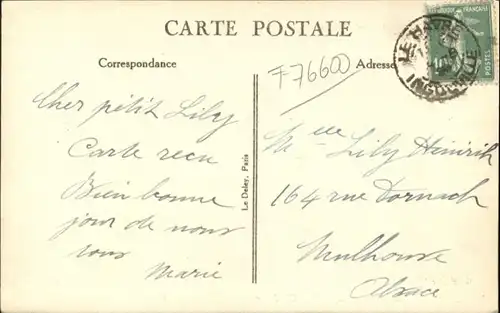 CARTE POSTALE
Correspondance
Adresse
F76600
LE HAVRE
INGOUVILLE
Cher petit Lily
Carte recu
Bien bonne
jour de nous
tous
Marie
Le Deley, Paris
Mlle Lily Heinrich
164 rue Dornach
Mulhouse
Alsace